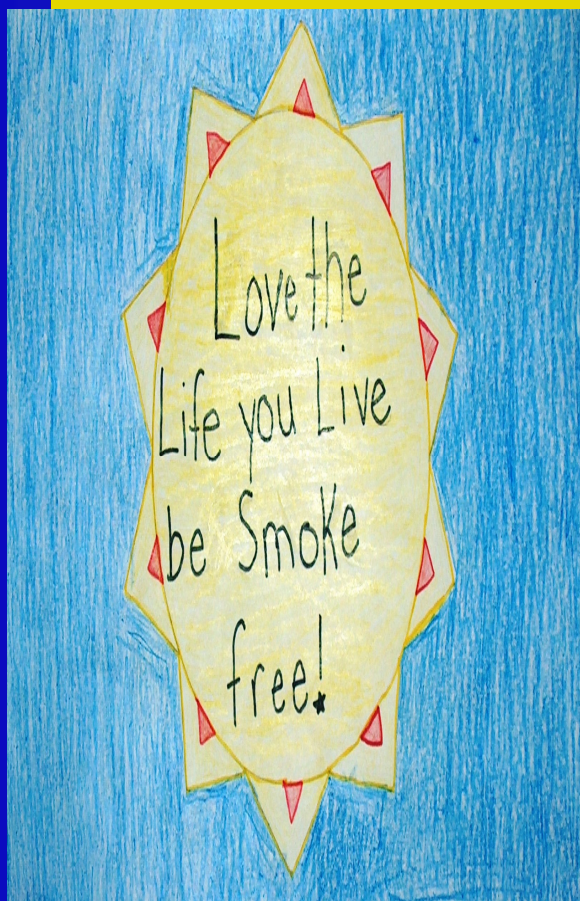 Love the
Life you Live
be Smoke
free!